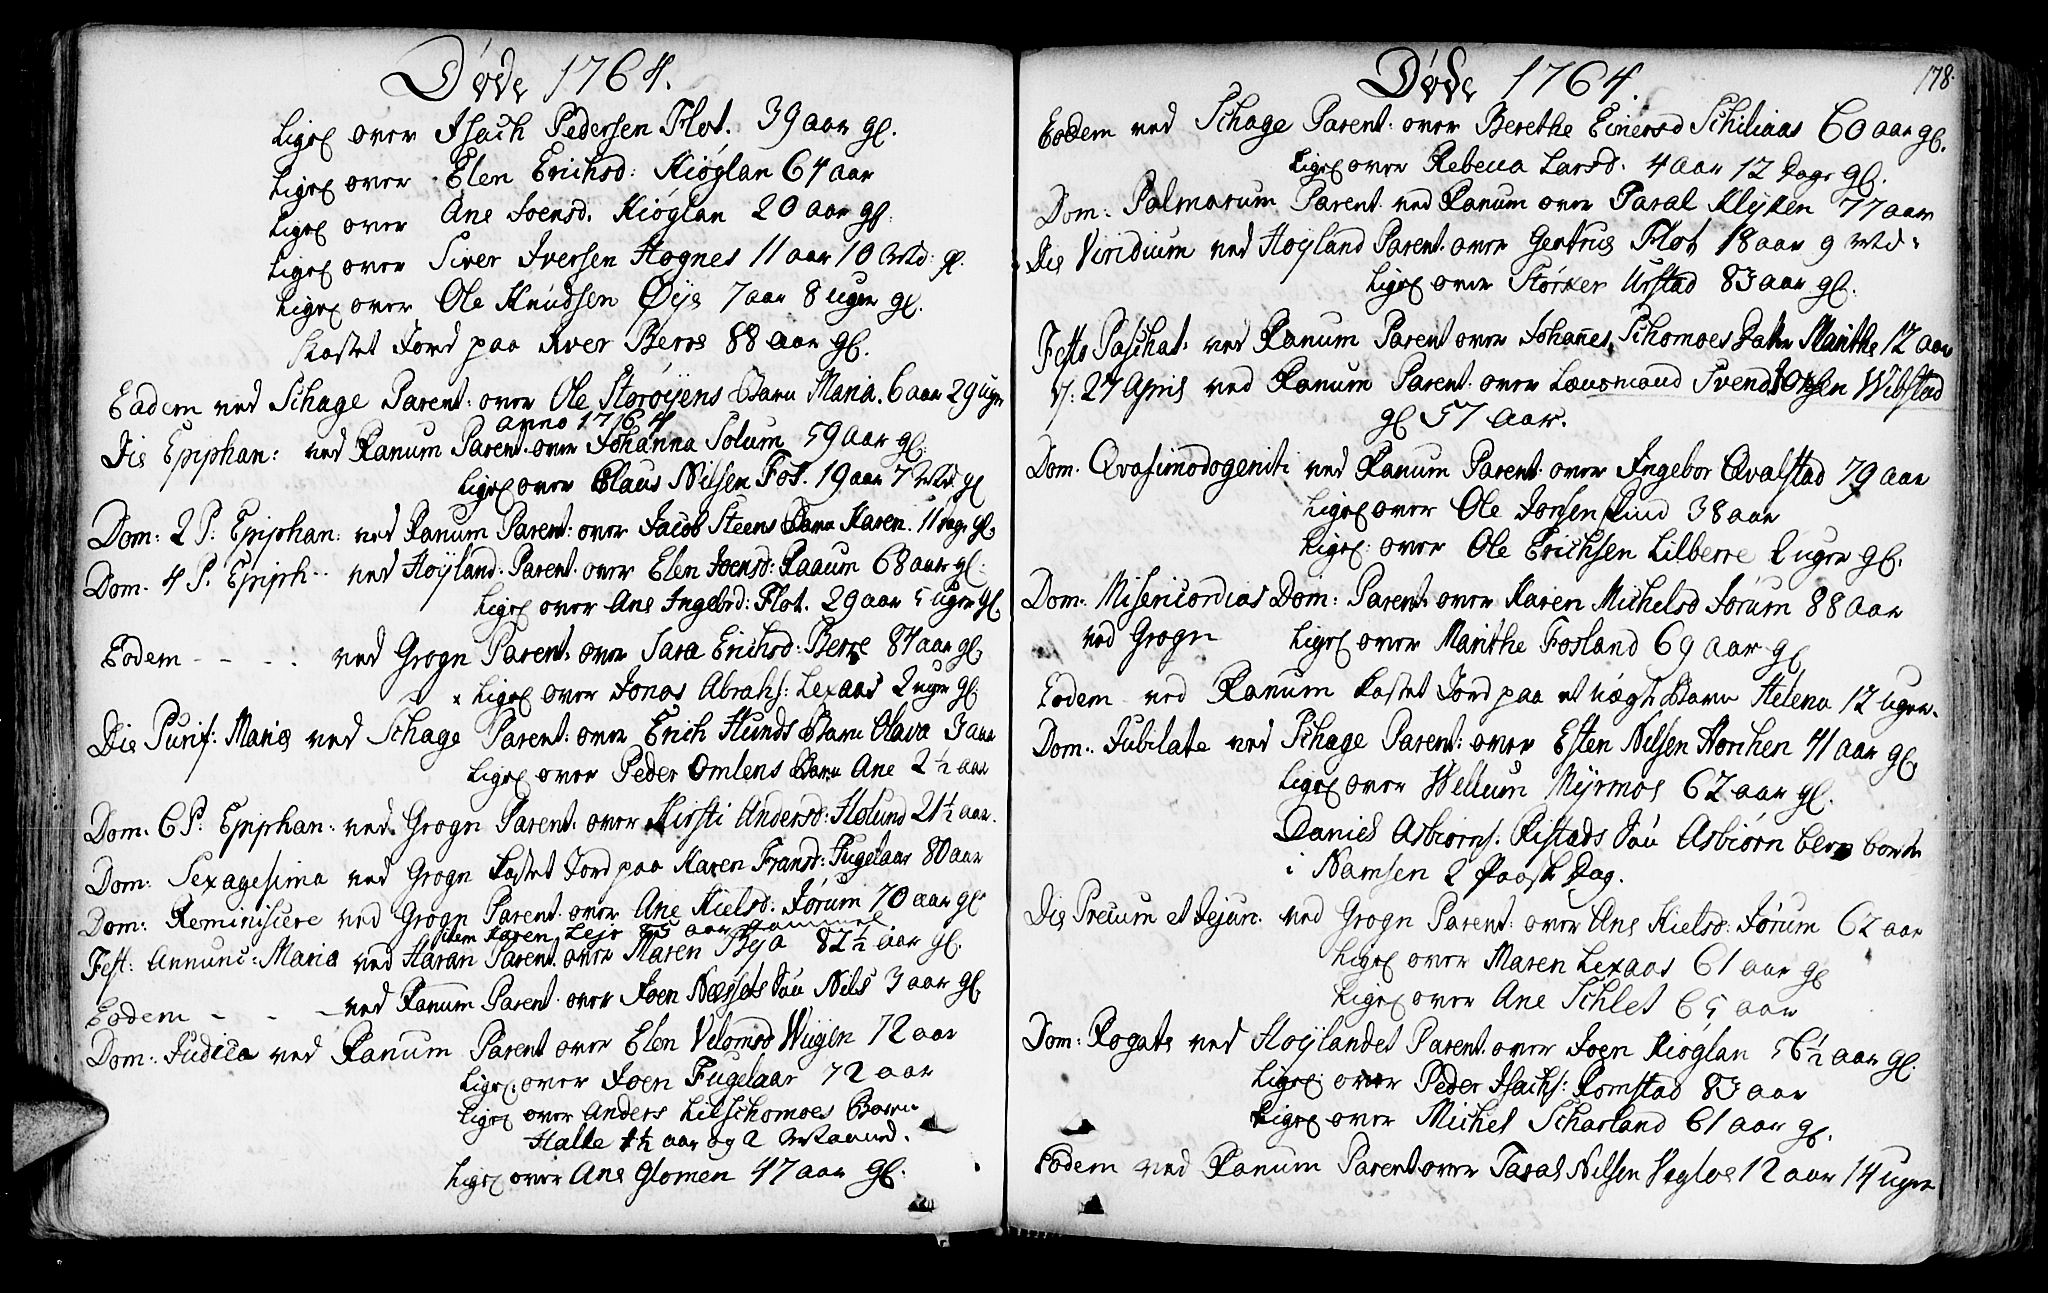 Døde 1764.
Ligeß over Isach Pedersen Flot. 39 aar gl.
Ligeß over Elen Erichsd: Kiøglan 64 aar
Ligeß over Ane Joensd. Kiøglan 20 aar gl.
Ligeß over Siver Iversen Høgnes 11 aar 10 Md: gl.
Ligeß over Ole Knudsen Øye 7 aar 8 uger gl.
Kastet Jord paa Iver Berre 88 aar gl.
Eodem ved Schage Parent: over Ole Storøyens Barn Maria. 6 aar 29 uger
anno 1764
Die Epiphan: ved Ranum Parent. over Johanna Solum 59 aar gl.
Ligeß over Claus Nilsen Fos. 19 aar 7 Md. gl
Dom: 2 P: Epiphan: ved Ranum Parent: over Jacob Steens Barn Karen. 11 dage gl.
Dom. 4 P. Epiph.. ved Høyland. Parent. over Elen Joensd: Raaum 68 aar gl.
Ligeß over Ane Ingebrd: Flot. 29 aar 5 uger gl.
Eodem - - - . ved Grogn Parent: over Sara Erichsd: Berre 87 aar gl.
Ligeß over Jonas Abrahs: Lexaas 2 uger gl.
Die Purif: Maria ved Schage Parent: over Erich Hunds Barn Olava 3 aar
Ligeß over Peder Omlens Barn Ane 2 1/2 aar
Dom. 6 P: Epiphan: ved. Grogn Parent. over Kirsti Andersd: HøLund 21 1/2 aar.
Dom: Sexagesima ved Grogn Kastet Jord paa Karen Fransd: Fugelaar 80 aar
Dom: Reminiscere ved Grogn Parent. over Ane Kielsd: Jørum 70 aar gl
item Karen Leje 85 aar
Fest: Annunc: Maria ved Haran Parent. over Maren Bya 82 1/2 aar gl.
Eodem - - - ved Ranum Parent. over Joen Næssets Søn Nils 3 aar gl.
Dom: Judica ved Ranum Parent over Elen Velomsd Wiigen 72 aar
Ligeß: over Joen Fugelaar 72 aar
Ligeß over Anders Litlschomoes Barn
Halle 1 1/2 aar og 2 Maaned.
Ligeß over Ane Glømen 47 aar gl.
Døde 1764.
178.
Eodem ved Schage Parent: over Berethe Einersd Schiliaas 60 aar gl.
Ligeß over Rebecca Larsd: 4 aar 12 Dage gl.
Dom: Palmarum Parent. ved Ranum over Paral Klyken 77 aar
Die Viridium ved Høyland Parent. over Gertrue Flot 18 aar 9 Md:
Ligeß over Størker Urstad 83 aar gl.
Festo Paschat: ved Ranum Parent over Johannes Schomoes Datter Marithe 12 aar
d: 27 April ved Ranum Parent. over Lænsmand Svend Olsen Wibstad
gl 57 aar.
Dom. Qvasimodogeniti ved Ranum Parent. over Ingebor Qvalstad 79 aar
Ligeß over Ole Jonsen Rind 38 aar
Ligeß: over Ole Erichsen Lilberre 2 uger gl.
Dom: Misericordias Dom: Parent. over Karen Michelsd Jørum 88 aar
ved Grogn Ligeß over Marithe Fosland 69 aar gl
Eodem ved Ranum Kastet Jord paa et uægte Barn Helena 12 uger.
Dom: Jubilate ved Schage Parent: over Esten Nilsen Horchen 41 aar gl.
Ligeß over Wellum Myrmoe 62 aar gl.
Daniel Asbiørns: Ristads Søn Asbiørn blev borte
i Namsen 2 Paaske Dag.
Die Precum et Jejun: ved Grogn Parent: over Ane Kielsd: Jørum 62 aar
Ligeß over Maren Lexaas 61 aar gl
Ligeß over Ane Schlet 65 aar
Dom: Rogate ved Høylandet Parent. over Joen Kiøglan 56 1/2 aar gl.
Ligeß: over Peder Isachs: Romstad 83 aar
Ligeß over Michel Scharland 61 aar gl.
Eodem ved Ranum Parent over Taral Nilsen Veglos 12 aar 14 uger